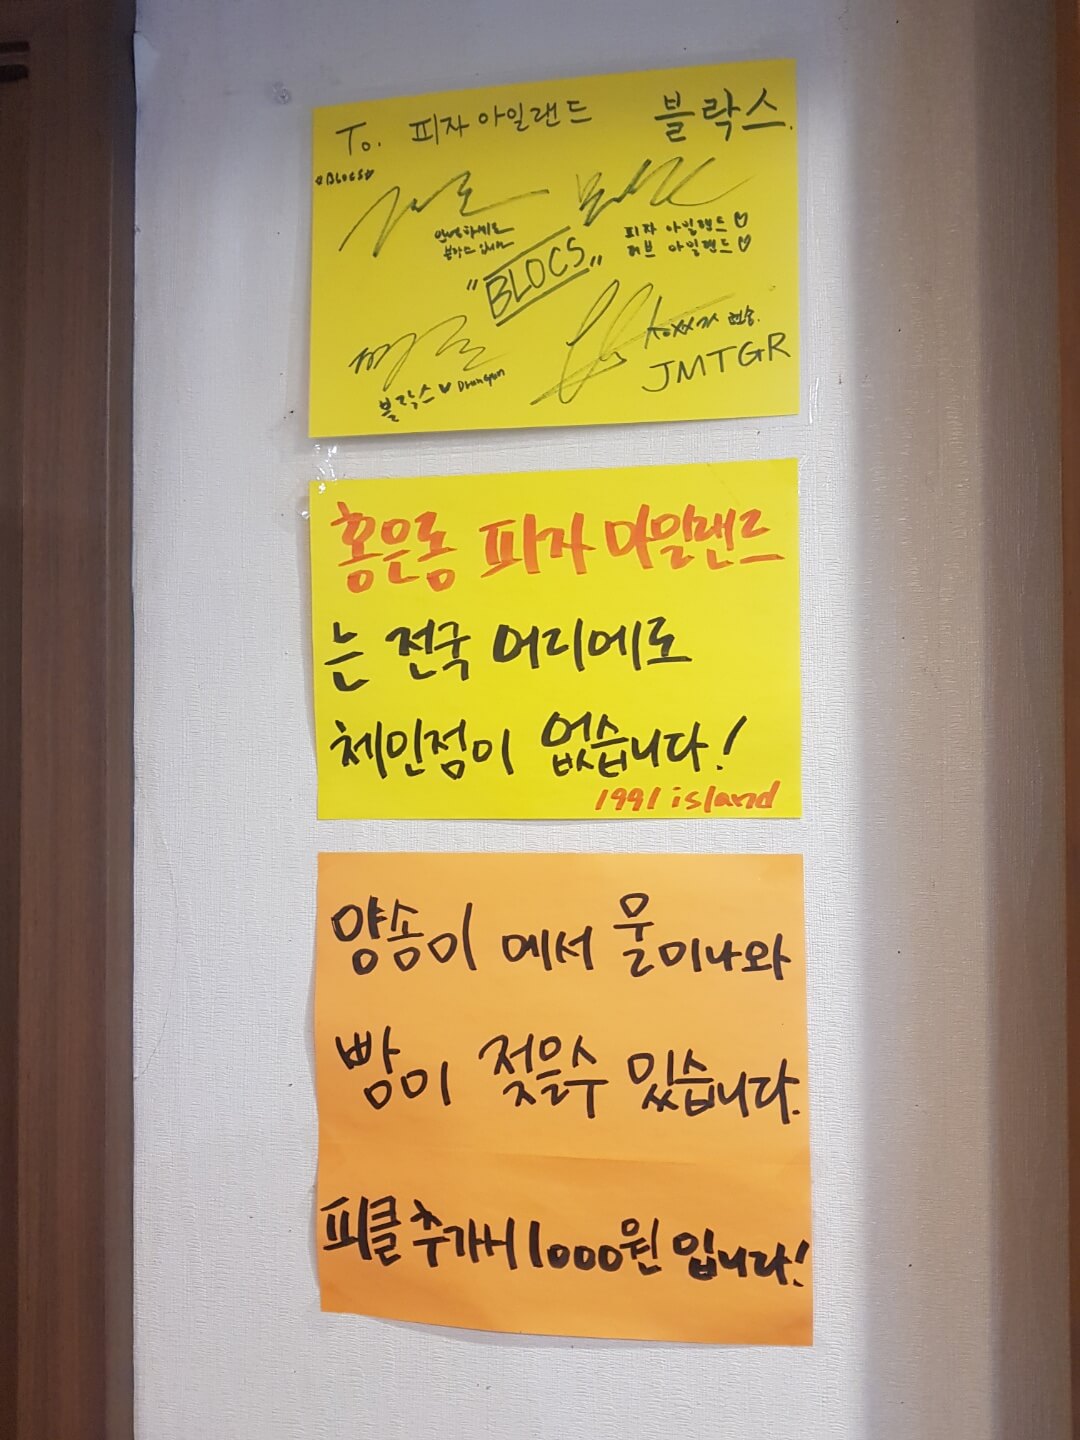 To. 피자 아일랜드 블락스.
BLOCS
안녕하세요
블락스 입니다
피자 아일랜드♡
러브 아일랜드♡
"BLOCS"
블락스♥
JMTGR
홍은동 피자 아일랜드
는 전국 어디에도
체인점이 없습니다!
1991 island
양송이 에서 물이나와
빵이 젖을수 있습니다.
피클 추가시 1000원 입니다!